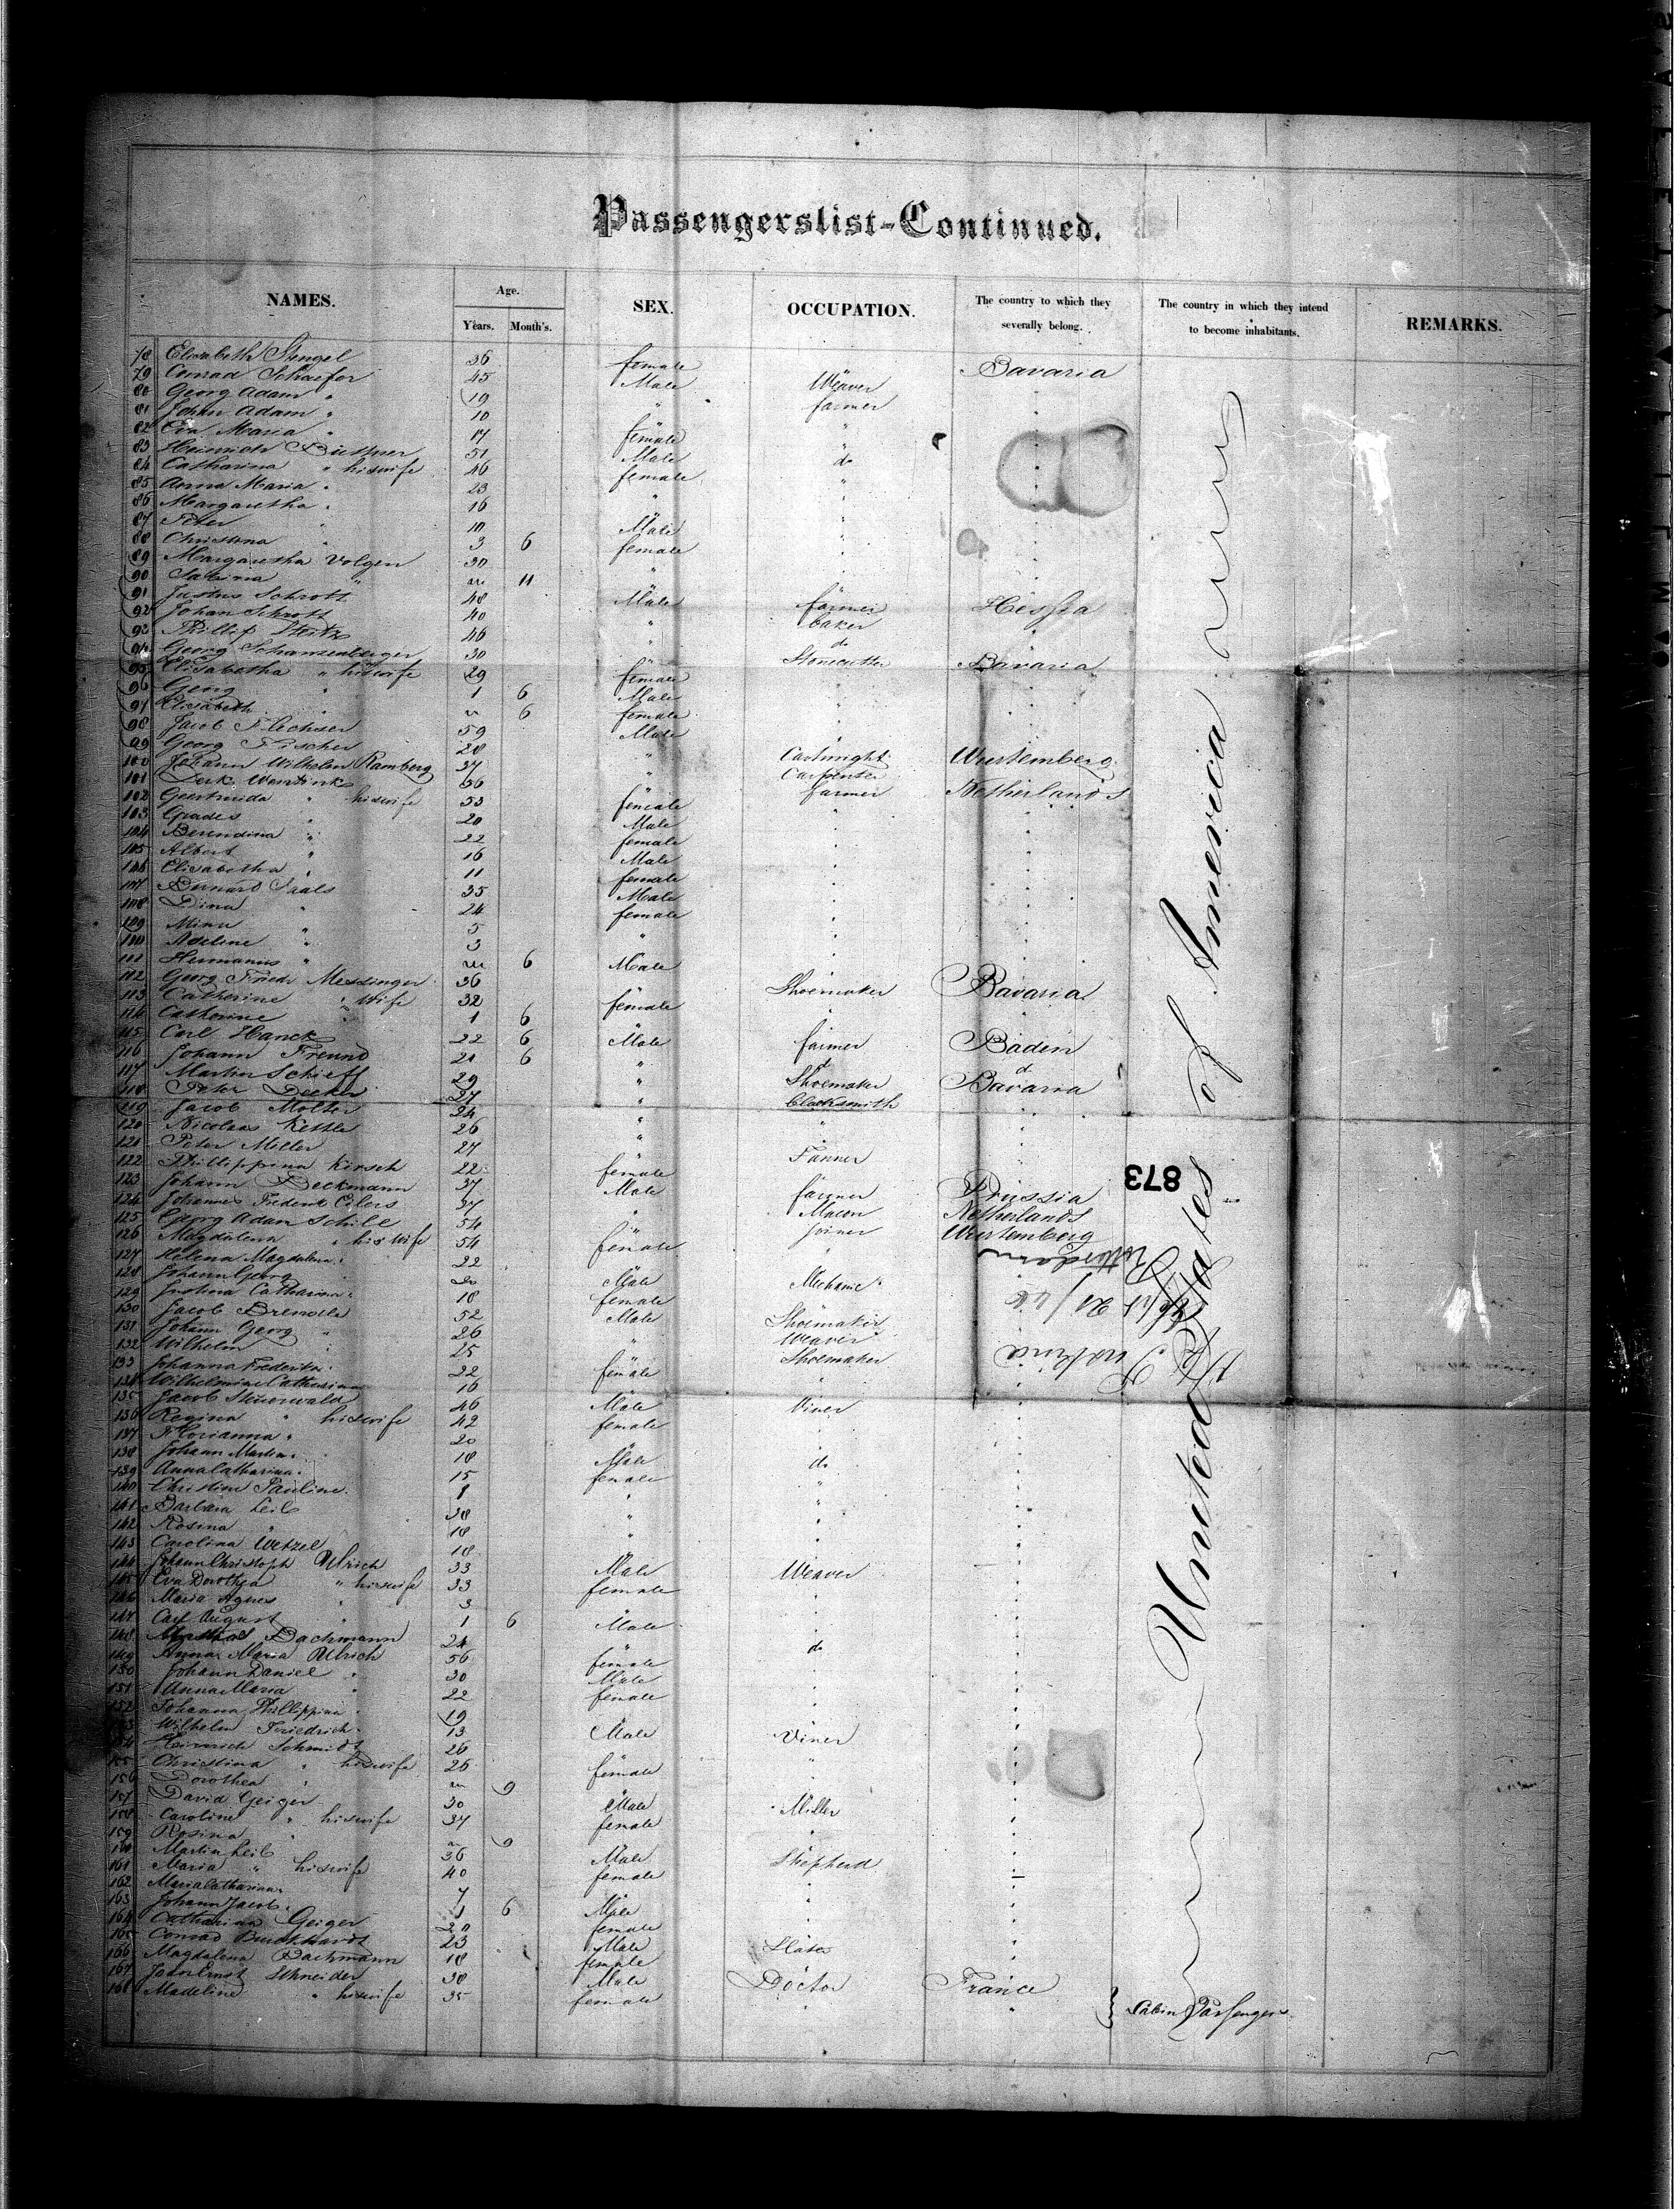 Passengerslist-Continued.
NAMES. Age. Years. Month's. SEX. OCCUPATION. The country to which they severally belong. The country in which they intend to become inhabitants. REMARKS.
78 Elisabeth Stengel 36 female Bavaria
79 Conrad Schaefer 45 Male Weaver
80 Georg Adam " 19 " farmer
81 Johan Adam " 10 "
82 Eva Maria " 17 female "
83 Heinrich Büttner 51 Male do
84 Catharina " his wife 46 female "
85 Anna Maria " 23 "
86 Margaretha " 16 "
87 Peter " 10 Male
88 Christina " 3 6 female
89 Margaretha Volgen 30 "
90 Sabina " 11
91 Justus Schrott 48 Male farmer Hessia
92 Johan Schrott 40 " baker "
93 Phillip Steitz 46 " do
94 Georg Schansenberger 30 " Stonecutter Bavaria
95 Elisabetha " his wife 29 female
96 Georg " 1 6 Male
97 Elisabeth " 6 female
98 Jacob Flechser 59 Male
99 Georg Fischer 28 " Cartwright Wurtemberg
100 Johann Wilhelm Ramberg 37 " Carpenter
101 Derk Wentink 56 " farmer Netherlands
102 Geertruida " his wife 53 female
103 Grades " 20 Male
104 Berendina " 22 female
105 Albert " 16 Male
106 Elisabetha " 11 female
107 Bernard 35 Male
108 Dina " 24 female
109 Mina " 5 "
110 Adeline " 3
111 Hermanus " 6 Male
112 Georg Friedr Messinger 36 Shoemaker Bavaria
113 Catherine " wife 32 female
114 Catherine " 1 6
115 Carl Hanck 22 6 Male farmer Baden
116 Johann Freund 21 6 " d d
117 Martin Schieff 29 " Shoemaker Bavaria
118 Peter Decker 27 " blacksmith
119 Jacob Molter 24 " "
120 Nicolaus Kettle 26 "
121 Peter Miller 27 " Tanner
122 Phillippina Kirsch 22 female
123 Johann Beckmann 37 Male farmer Prussia
124 Johannes Frederik Eilers 37 " Mason Netherlands
125 Georg Adam Schill 54 " Joiner Wurtemberg
126 Magdalena " his wife 54 female "
127 Helena Magdalena " 22
128 Johann Georg " 20 Male Mechanic
129 Justina Catharina " 18 female
130 Jacob Brendle 52 Male Shoemaker
131 Johann Georg " 26 Weaver
132 Wilhelm " 25 " Shoemaker
133 Johanna Frederika " 22 female
134 Wilhelmine Catherina 16 "
135 Jacob Steuerwald 46 Male Viner
136 Regina " his wife 42 female
137 Florianna " 20
138 Johann Martin " 18 Male do
139 Anna Catharina " 15 female
140 Christine Pauline " 8 "
141 Barbara Leib 38 "
142 Rosina " 18 "
143 Carolina Wetzel 18 "
144 Johann Christoph Ulrich 33 Male Weaver
145 Eva Dorothea " his wife 33 female
146 Maria Agnes " 3
147 Carl August " 1 6 Male
148 Bachmann 24 do
149 Anna Maria Ulrich 56 female
150 Johann Daniel " 30 Male
151 Anna Maria " 22 female
152 Johanna Phillippina " 19
153 Wilhelm Friedrich " 13 Male Viner
154 Heinrich Schmidt 26
155 Christina " his wife 26 female
156 Dorothea " 9
157 David Geiger 30 Male Miller
158 Caroline " his wife 37 female
159 Rosina " 9
160 Martin Leib 36 Male Shepherd
161 Maria " his wife 40 female
162 Maria Catharina " 7
163 Johann Jacob " 1 6 Male
164 Catharina Geiger 20 female
165 Conrad Burckhardt 23 Male
166 Magdalena Bachmann 18 female
167 John Ernst Schneider 38 Male Doctor France
168 Madeline " his wife 35 female " " } Cabin Passengers
United States of America
873
Rotterdam